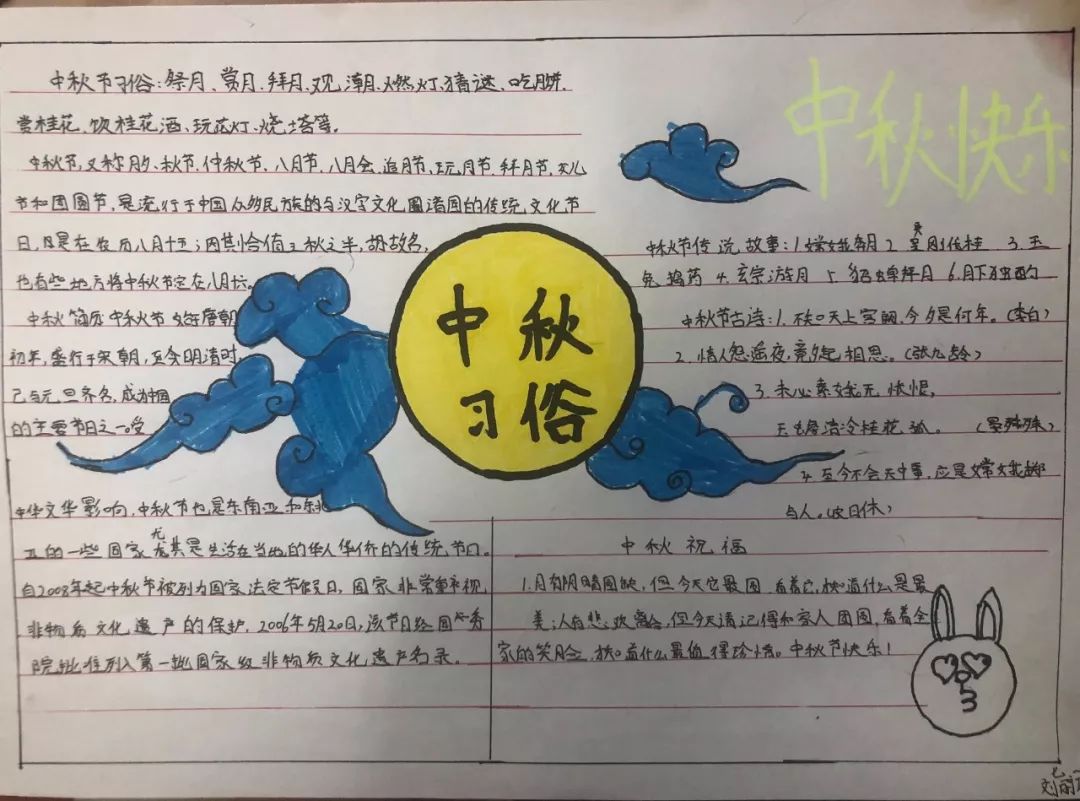 中秋节习俗:祭月、赏月、拜月、观潮、燃灯、猜谜、吃月饼、
赏桂花、饮桂花酒、玩花灯、烧塔等。
中秋节,又称月夕、秋节、仲秋节、八月节、八月会、追月节、玩月节、拜月节、女儿
节和团圆节,是流行于中国众多民族的与汉字文化圈诸国的传统文化节
日,时在农历八月十五;因其恰值三秋之半,故名,
也有些地方将中秋节定在八月十六。
中秋简历 中秋节 始于唐朝
初年,盛行于宋朝,至今明清时,
已与元旦齐名,成为中国
的主要节日之一。受
中华文华影响,中秋节也是东南亚和东北
亚的一些国家尤其是生活在当地的华人华侨的传统节日。
自2008年起中秋节被列为国家法定节假日,国家非常重视
非物质文化遗产的保护,2006年5月20日,该节日经国务
院批准列入第一批国家级非物质文化遗产名录。
中秋快乐
中秋
习俗
中秋节传说故事:1.嫦娥奔月 2.吴刚伐桂 3.玉
兔捣药 4.玄宗游月 5.貂蝉拜月 6.月下独酌
中秋节古诗:1.不知天上宫朝,今夕是何年。(李白)
2.情人怨遥夜,竟夕起相思。(张九龄)
3.未必素娥无怅恨,
玉蟾清冷桂花孤。(晏殊)
4.至今不会天中事,应是嫦娥掷
与人。(皮日休)
中秋祝福
1.月有阴晴圆缺,但今天它最圆,看着它,知道什么是最
美;人有悲欢离合,但今天请记得和家人团圆,看着全
家的笑脸,知道什么最值得珍惜。中秋节快乐!